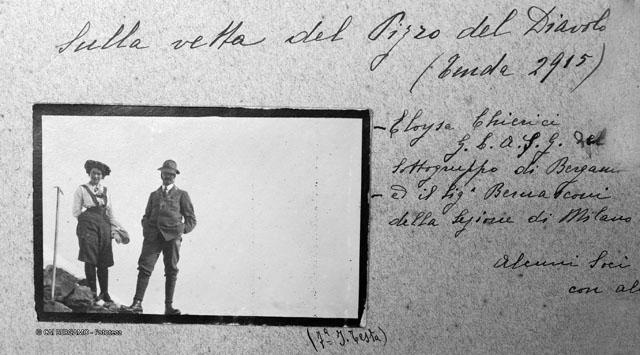 Sulla vetta del Pizzo del Diavolo
(Tenda 2915)
- Eloysa Chierici
G. L. A. S. G. del
Sottogruppo di Bergamo
- ed il Sig. Bernasconi
della Sezione di Milano
Alcuni Soci
con al
© CAI BERGAMO - Fototeca
Testa)